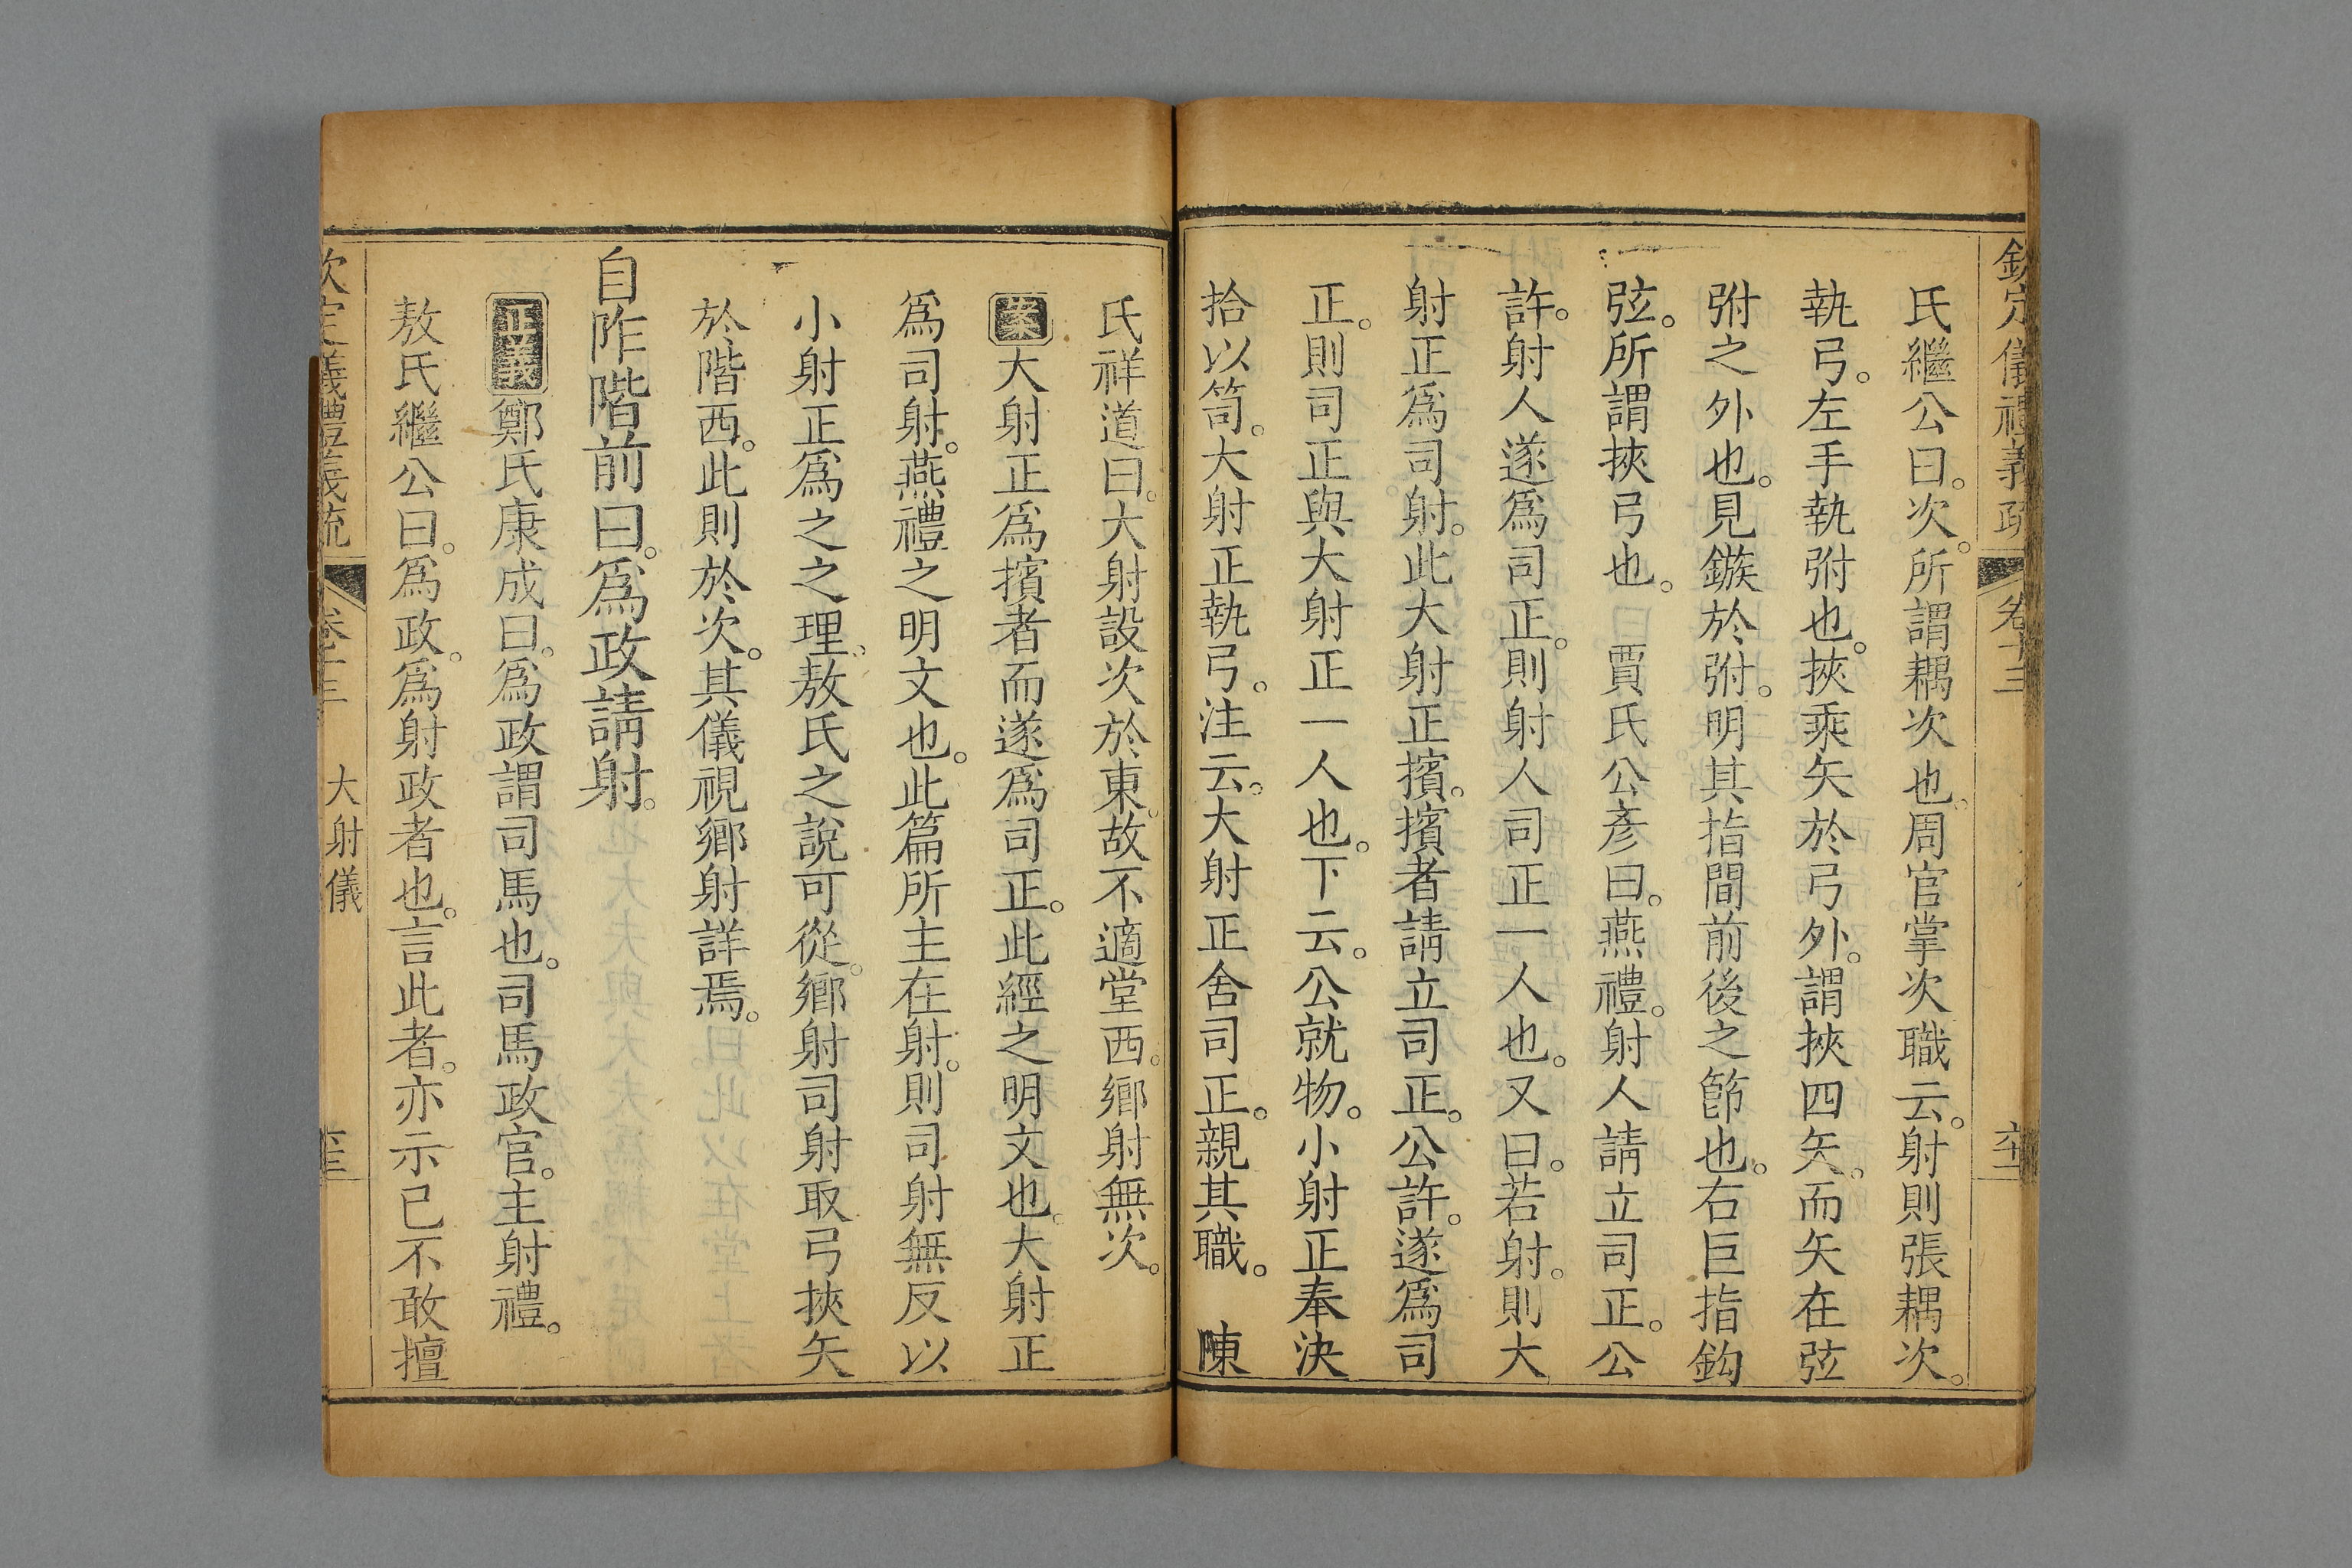 欽定儀禮義疏 卷十三
氏繼公曰。次。所謂耦次也。周官掌次職云。射則張耦次。
執弓。左手執弣也。挾乘矢於弓外。謂挾四矢。而矢在弦
弣之外也。見鏃於弣。明其指間前後之節也。右巨指鈎
弦。所謂挾弓也。 賈氏公彥曰。燕禮。射人請立司正。公
許。射人遂爲司正。則射人司正一人也。又曰。若射。則大
射正爲司射。此大射正擯。擯者請立司正。公許。遂爲司
正。則司正與大射正一人也。下云。公就物。小射正奉決
拾以笥。大射正執弓。注云。大射正舍司正。親其職。 陳
氏祥道曰。大射設次於東。故不適堂西。鄉射無次。
案大射正爲擯者而遂爲司正。此經之明文也。大射正
爲司射。燕禮之明文也。此篇所主在射。則司射無反以
小射正爲之之理。敖氏之說可從。鄉射司射取弓挾矢
於階西。此則於次。其儀視鄉射詳焉。
自阼階前曰。爲政請射。
正義鄭氏康成曰。爲政謂司馬也。司馬政官。主射禮。
敖氏繼公曰。爲政。爲射政者也。言此者。亦示已不敢擅
欽定儀禮義疏 卷十三 大射儀